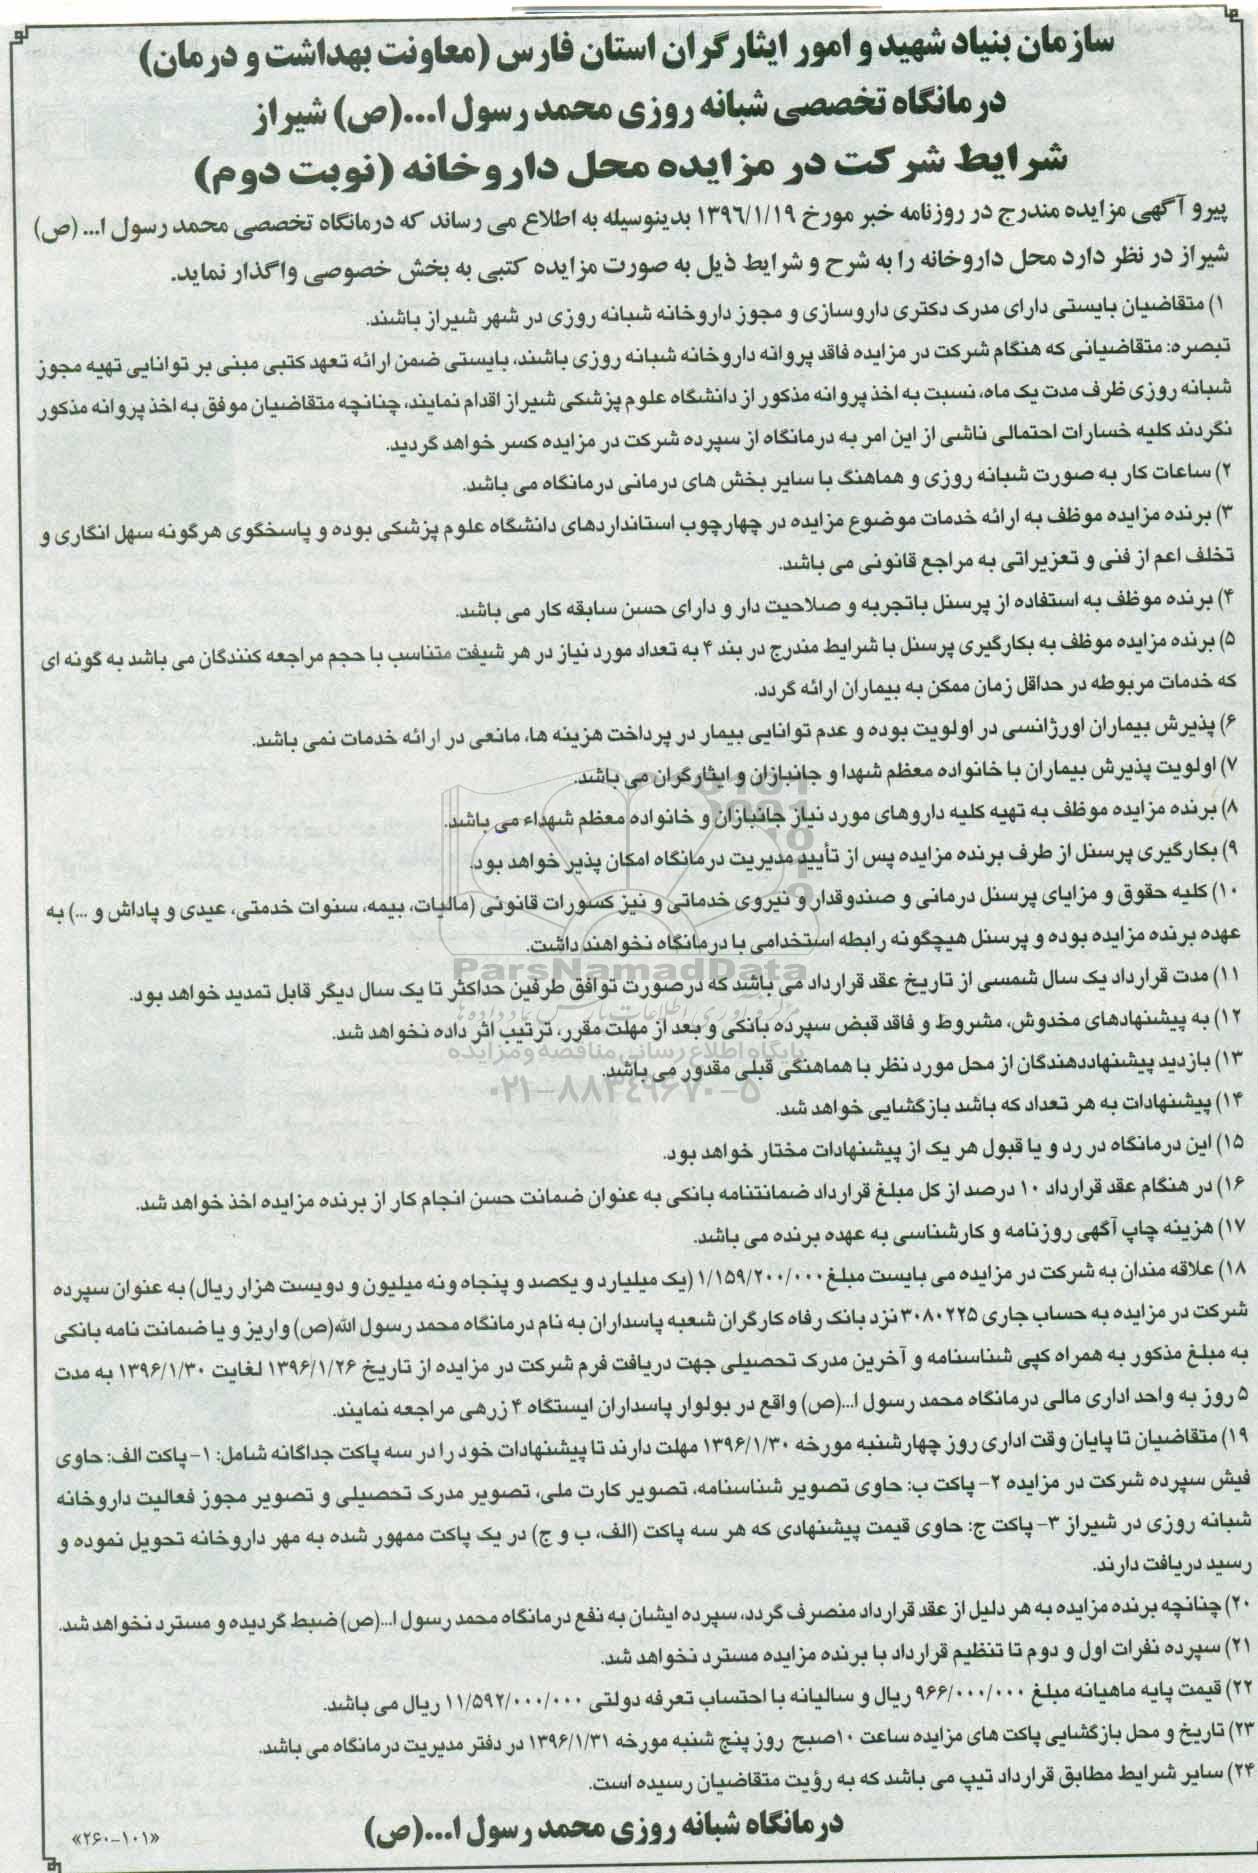 سازمان بنیاد شهید و امور ایثارگران استان فارس (معاونت بهداشت و درمان)
درمانگاه تخصصی شبانه روزی محمد رسول ا...(ص) شیراز
شرایط شرکت در مزایده محل داروخانه (نوبت دوم)
پیرو آگهی مزایده مندرج در روزنامه خبر مورخ ۱۳۹۶/۱/۱۹ بدینوسیله به اطلاع می رساند که درمانگاه تخصصی محمد رسول ا... (ص)
شیراز در نظر دارد محل داروخانه را به شرح و شرایط ذیل به صورت مزایده کتبی به بخش خصوصی واگذار نماید.
۱) متقاضیان بایستی دارای مدرک دکتری داروسازی و مجوز داروخانه شبانه روزی در شهر شیراز باشند.
تبصره: متقاضیانی که هنگام شرکت در مزایده فاقد پروانه داروخانه شبانه روزی باشند، بایستی ضمن ارائه تعهد کتبی مبنی بر توانایی تهیه مجوز
شبانه روزی ظرف مدت یک ماه، نسبت به اخذ پروانه مذکور از دانشگاه علوم پزشکی شیراز اقدام نمایند، چنانچه متقاضیان موفق به اخذ پروانه مذکور
نگردند کلیه خسارات احتمالی ناشی از این امر به درمانگاه از سپرده شرکت در مزایده کسر خواهد گردید.
۲) ساعات کار به صورت شبانه روزی و هماهنگ با سایر بخش های درمانی درمانگاه می باشد.
۳) برنده مزایده موظف به ارائه خدمات موضوع مزایده در چهارچوب استانداردهای دانشگاه علوم پزشکی بوده و پاسخگوی هرگونه سهل انگاری و
تخلف اعم از فنی و تعزیراتی به مراجع قانونی می باشد.
۴) برنده موظف به استفاده از پرسنل باتجربه و صلاحیت دار و دارای حسن سابقه کار می باشد.
۵) برنده مزایده موظف به بکارگیری پرسنل با شرایط مندرج در بند ۴ به تعداد مورد نیاز در هر شیفت متناسب با حجم مراجعه کنندگان می باشد به گونه ای
که خدمات مربوطه در حداقل زمان ممکن به بیماران ارائه گردد.
۶) پذیرش بیماران اورژانسی در اولویت بوده و عدم توانایی بیمار در پرداخت هزینه ها، مانعی در ارائه خدمات نمی باشد.
۷) اولویت پذیرش بیماران با خانواده معظم شهدا و جانبازان و ایثارگران می باشد.
۸) برنده مزایده موظف به تهیه کلیه داروهای مورد نیاز جانبازان و خانواده معظم شهداء می باشد.
۹) بکارگیری پرسنل از طرف برنده مزایده پس از تأیید مدیریت درمانگاه امکان پذیر خواهد بود.
۱۰) کلیه حقوق و مزایای پرسنل درمانی و صندوقدار و نیروی خدماتی و نیز کسورات قانونی (مالیات، بیمه، سنوات خدمتی، عیدی و پاداش و ...) به
عهده برنده مزایده بوده و پرسنل هیچگونه رابطه استخدامی با درمانگاه نخواهند داشت.
ParsNamadData
۱۱) مدت قرارداد یک سال شمسی از تاریخ عقد قرارداد می باشد که درصورت توافق طرفین حداکثر تا یک سال دیگر قابل تمدید خواهد بود.
۱۲) به پیشنهادهای مخدوش، مشروط و فاقد قبض سپرده بانکی و بعد از مهلت مقرر، ترتیب اثر داده نخواهد شد.
پایگاه اطلاع رسانی مناقصه و مزایده
۱۳) بازدید پیشنهاددهندگان از محل مورد نظر با هماهنگی قبلی مقدور می باشد.
۰۲۱-۸۸۳۴۹۶۷۰-۵
۱۴) پیشنهادات به هر تعداد که باشد بازگشایی خواهد شد.
۱۵) این درمانگاه در رد و یا قبول هر یک از پیشنهادات مختار خواهد بود.
۱۶) در هنگام عقد قرارداد ۱۰ درصد از کل مبلغ قرارداد ضمانتنامه بانکی به عنوان ضمانت حسن انجام کار از برنده مزایده اخذ خواهد شد.
۱۷) هزینه چاپ آگهی روزنامه و کارشناسی به عهده برنده می باشد.
۱۸) علاقه مندان به شرکت در مزایده می بایست مبلغ ۱/۱۵۹/۲۰۰/۰۰۰ (یک میلیارد و یکصد و پنجاه و نه میلیون و دویست هزار ریال) به عنوان سپرده
شرکت در مزایده به حساب جاری ۳۰۸۰۲۲۵ نزد بانک رفاه کارگران شعبه پاسداران به نام درمانگاه محمد رسول الله(ص) واریز و یا ضمانت نامه بانکی
به مبلغ مذکور به همراه کپی شناسنامه و آخرین مدرک تحصیلی جهت دریافت فرم شرکت در مزایده از تاریخ ۱۳۹۶/۱/۲۶ لغایت ۱۳۹۶/۱/۳۰ به مدت
۵ روز به واحد اداری مالی درمانگاه محمد رسول ا...(ص) واقع در بولوار پاسداران ایستگاه ۴ زرهی مراجعه نمایند.
۱۹) متقاضیان تا پایان وقت اداری روز چهارشنبه مورخه ۱۳۹۶/۱/۳۰ مهلت دارند تا پیشنهادات خود را در سه پاکت جداگانه شامل: ۱- پاکت الف: حاوی
فیش سپرده شرکت در مزایده ۲- پاکت ب: حاوی تصویر شناسنامه، تصویر کارت ملی، تصویر مدرک تحصیلی و تصویر مجوز فعالیت داروخانه
شبانه روزی در شیراز ۳- پاکت ج: حاوی قیمت پیشنهادی که هر سه پاکت (الف، ب و ج) در یک پاکت ممهور شده به مهر داروخانه تحویل نموده و
رسید دریافت دارند.
۲۰) چنانچه برنده مزایده به هر دلیل از عقد قرارداد منصرف گردد، سپرده ایشان به نفع درمانگاه محمد رسول ا...(ص) ضبط گردیده و مسترد نخواهد شد.
۲۱) سپرده نفرات اول و دوم تا تنظیم قرارداد با برنده مزایده مسترد نخواهد شد.
۲۲) قیمت پایه ماهیانه مبلغ ۹۶۶/۰۰۰/۰۰۰ ریال و سالیانه با احتساب تعرفه دولتی ۱۱/۵۹۲/۰۰۰/۰۰۰ ریال می باشد.
۲۳) تاریخ و محل بازگشایی پاکت های مزایده ساعت ۱۰صبح روز پنج شنبه مورخه ۱۳۹۶/۱/۳۱ در دفتر مدیریت درمانگاه می باشد.
۲۴) سایر شرایط مطابق قرارداد تیپ می باشد که به رؤیت متقاضیان رسیده است.
درمانگاه شبانه روزی محمد رسول ا...(ص)
«۲۶۰-۱۰۱»